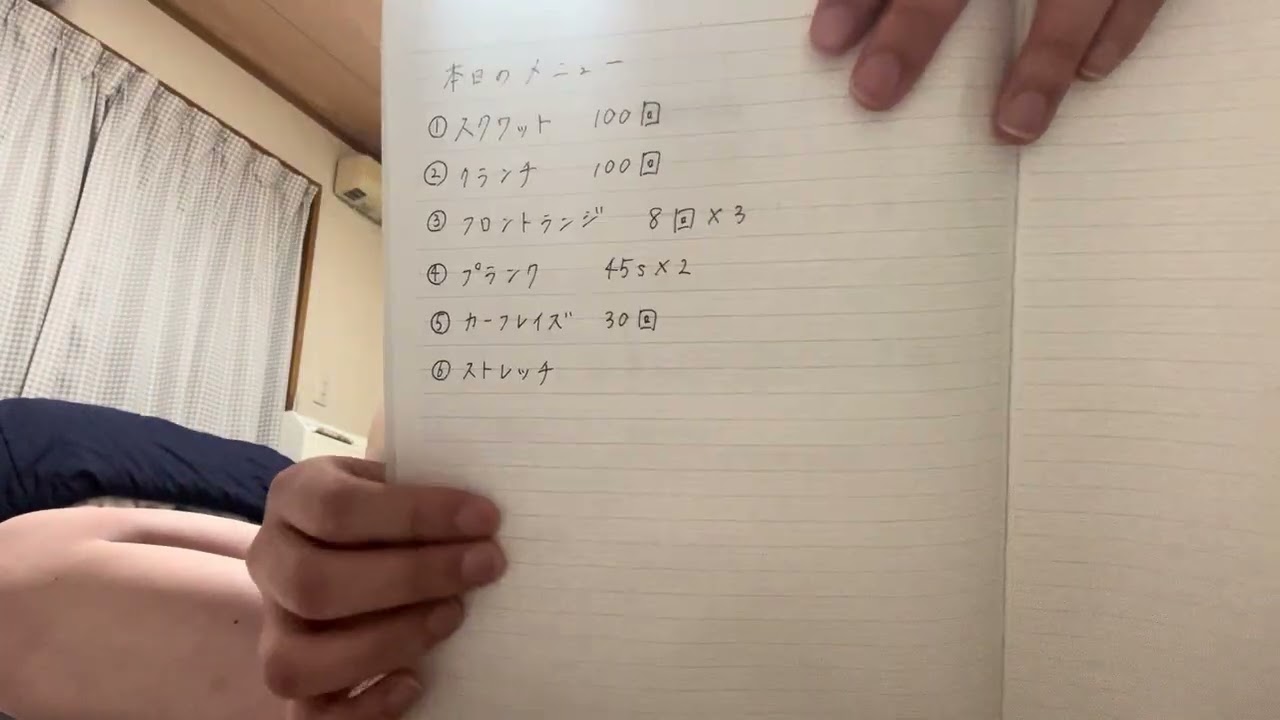 本日のメニュー
①スクワット 100回
②クランチ 100回
③フロントランジ 8回×3
④プランク 45s×2
⑤カーフレイズ 30回
⑥ストレッチ